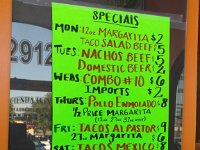 SPECIALS
MON: 12oz MARGARITA $2
TACO SALAD BEEF $5
TUES: NACHOS BEEF $5
DOMESTIC BEER $2
WEDS: COMBO #10 $6
IMPORTS $2
THURS: POLLO ENMOLADO $8
1/2 PRICE MARGARITA
FRI: TACOS AL PASTOR $9
27oz MARGARITA $6
SAT: TACOS MEXICO $8
2912